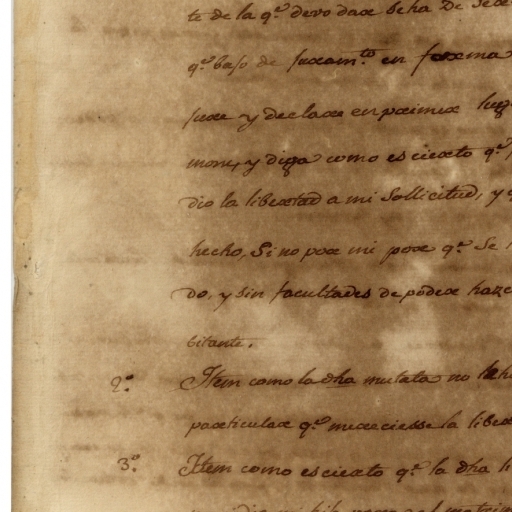 te de la q.e devo dar se ha de
q.e bajo de juram.to en forma
jure y declare en primer lug
mone, y diga como es cierto q.e
dio la libertad a mi sollicitud, y
hecho, Si no por mi por q.e Se
do, y sin facultades de poder haze
bitante.
2.a Itten como la dha mulata no
particular q.e mereciesse la liber
3.a Ittem como es cierto q.e la dha li